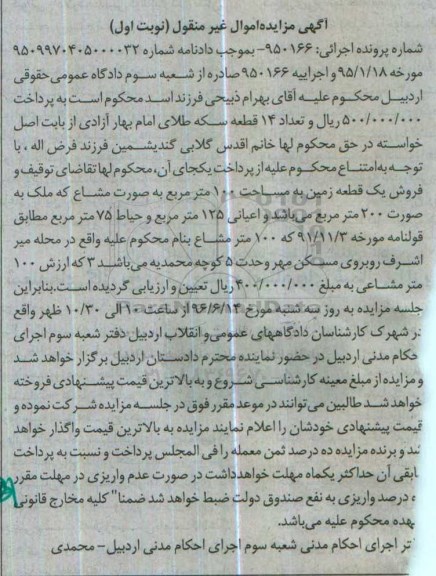 آگهی مزایده اموال غیر منقول (نوبت اول)
شماره پرونده اجرائی: ۹۵۰۱۶۶- بموجب دادنامه شماره ۹۵۰۹۹۷۰۴۰۵۰۰۰۰۳۲
مورخه ۹۵/۱/۱۸ و اجراییه ۹۵۰۱۶۶ صادره از شعبه سوم دادگاه عمومی حقوقی
اردبیل محکوم علیه آقای بهرام ذبیحی فرزند اسد محکوم است به پرداخت
۵۰۰/۰۰۰/۰۰۰ ریال و تعداد ۱۴ قطعه سکه طلای امام بهار آزادی از بابت اصل
خواسته در حق محکوم لها خانم اقدس گلابی گندیشمین فرزند فرض اله ، با
توجه به امتناع محکوم علیه از پرداخت یکجای آن، محکوم لها تقاضای توقیف و
فروش یک قطعه زمین به مساحت ۱۰۰ متر مربع به صورت مشاع که ملک به
صورت ۲۰۰ متر مربع می باشد و اعیانی ۱۲۵ متر مربع و حیاط ۷۵ متر مربع مطابق
قولنامه مورخه ۹۱/۱۱/۳ که ۱۰۰ متر مشاع بنام محکوم علیه واقع در محله میر
اشرف روبروی مسکن مهر وحدت ۵ کوچه محمدیه می باشد ۳ که ارزش ۱۰۰
متر مشاعی به مبلغ ۴۰۰/۰۰۰/۰۰۰ ریال تعیین و ارزیابی گردیده است. بنابراین
جلسه مزایده به روز سه شنبه مورخ ۹۶/۶/۱۴ از ساعت ۱۰ الی ۱۰/۳۰ ظهر واقع
در شهرک کارشناسان دادگاههای عمومی و انقلاب اردبیل دفتر شعبه سوم اجرای
احکام مدنی اردبیل در حضور نماینده محترم دادستان اردبیل برگزار خواهد شد
و مزایده از مبلغ معینه کارشناسی شروع و به بالاترین قیمت پیشنهادی فروخته
خواهد شد طالبین می توانند در موعد مقرر فوق در جلسه مزایده شرکت نموده و
قیمت پیشنهادی خودشان را اعلام نمایند مزایده به بالاترین قیمت واگذار خواهد
شد و برنده مزایده ده درصد ثمن معمله را فی المجلس پرداخت و نسبت به پرداخت
مابقی آن حداکثر یکماه مهلت خواهد داشت در صورت عدم واریزی در مهلت مقرر
ده درصد واریزی به نفع صندوق دولت ضبط خواهد شد ضمنا" کلیه مخارج قانونی
بعهده محکوم علیه می باشد.
دفتر اجرای احکام مدنی شعبه سوم اجرای احکام مدنی اردبیل – محمدی